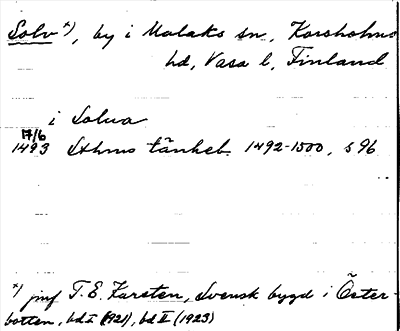 Solv *), by i Malaks sn, Korsholms
hd, Vasa l, Finland
i Solua
17/6
1493 Sthms tänkeb. 1492-1500, s 96
*) jmf T. E. Karsten, Svensk bygd i Öster-
botten, bd I (1921), bd II (1923)